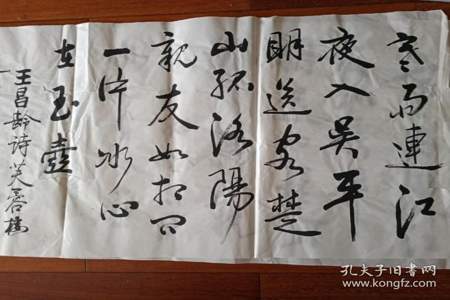 寒雨連江
夜入吴平
明送客楚
山孤洛陽
親友如相问
一片冰心
在玉壺
王昌齡诗芙蓉楼
孔夫子旧书网
www.kongfz.com